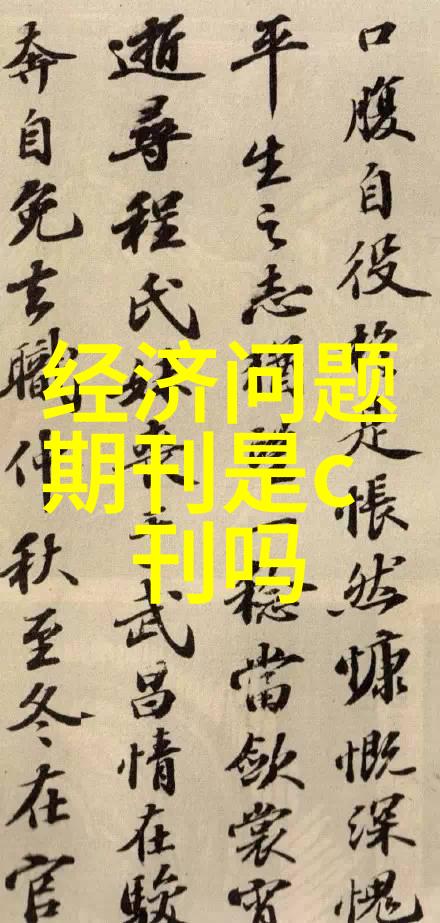 经济问题
期刊是c
刊吗
口腹自役是悵然慷慨深愧
平生之志猶一稔當歛裳宵
逝尋程氏妹喪于武昌情在駿
奔自免去職仲秋至冬在官